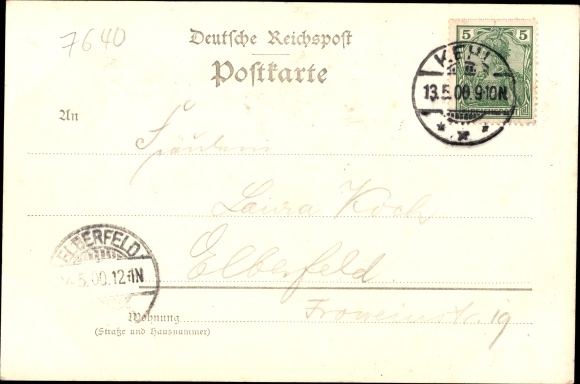 7640
Deutsche Reichspost
Postkarte
5 5
KEHL
13.5.00.9-10N
An
Fräulein
Laura Koch
Elberfeld
ELBERFELD
.5.00.12-1N
Froweinstr. 19
Wohnung
(Straße und Hausnummer)